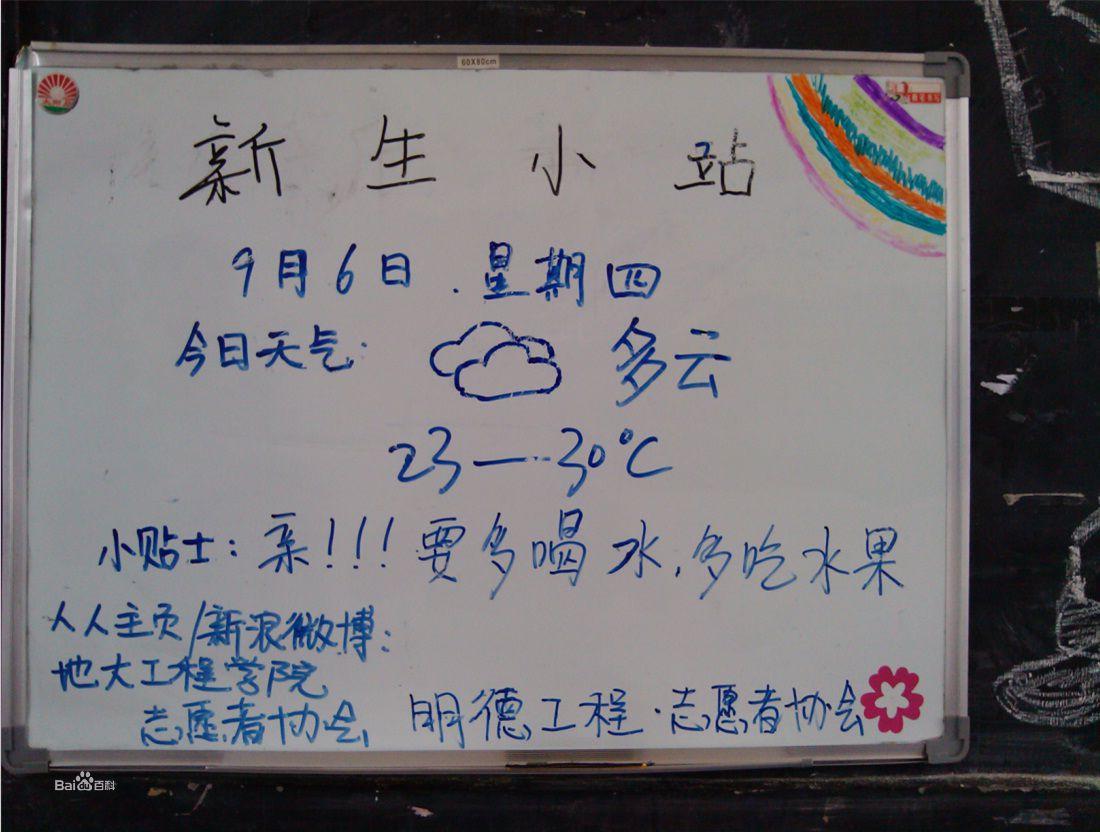 60X80cm
新生小站
9月6日.星期四
今日天气: 多云
23—30℃
小贴士:亲!!!要多喝水,多吃水果
人人主页/新浪微博:
地大工程学院
志愿者协会
明德工程·志愿者协会
Bai百科